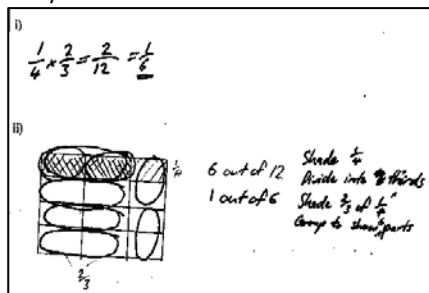 i)
1/4 × 2/3 = 2/12 = 1/6
ii)
1/4
2/3
6 out of 12
1 out of 6
Shade 1/4
Divide into thirds
Shade 2/3 of 1/4
Group to show 6 parts